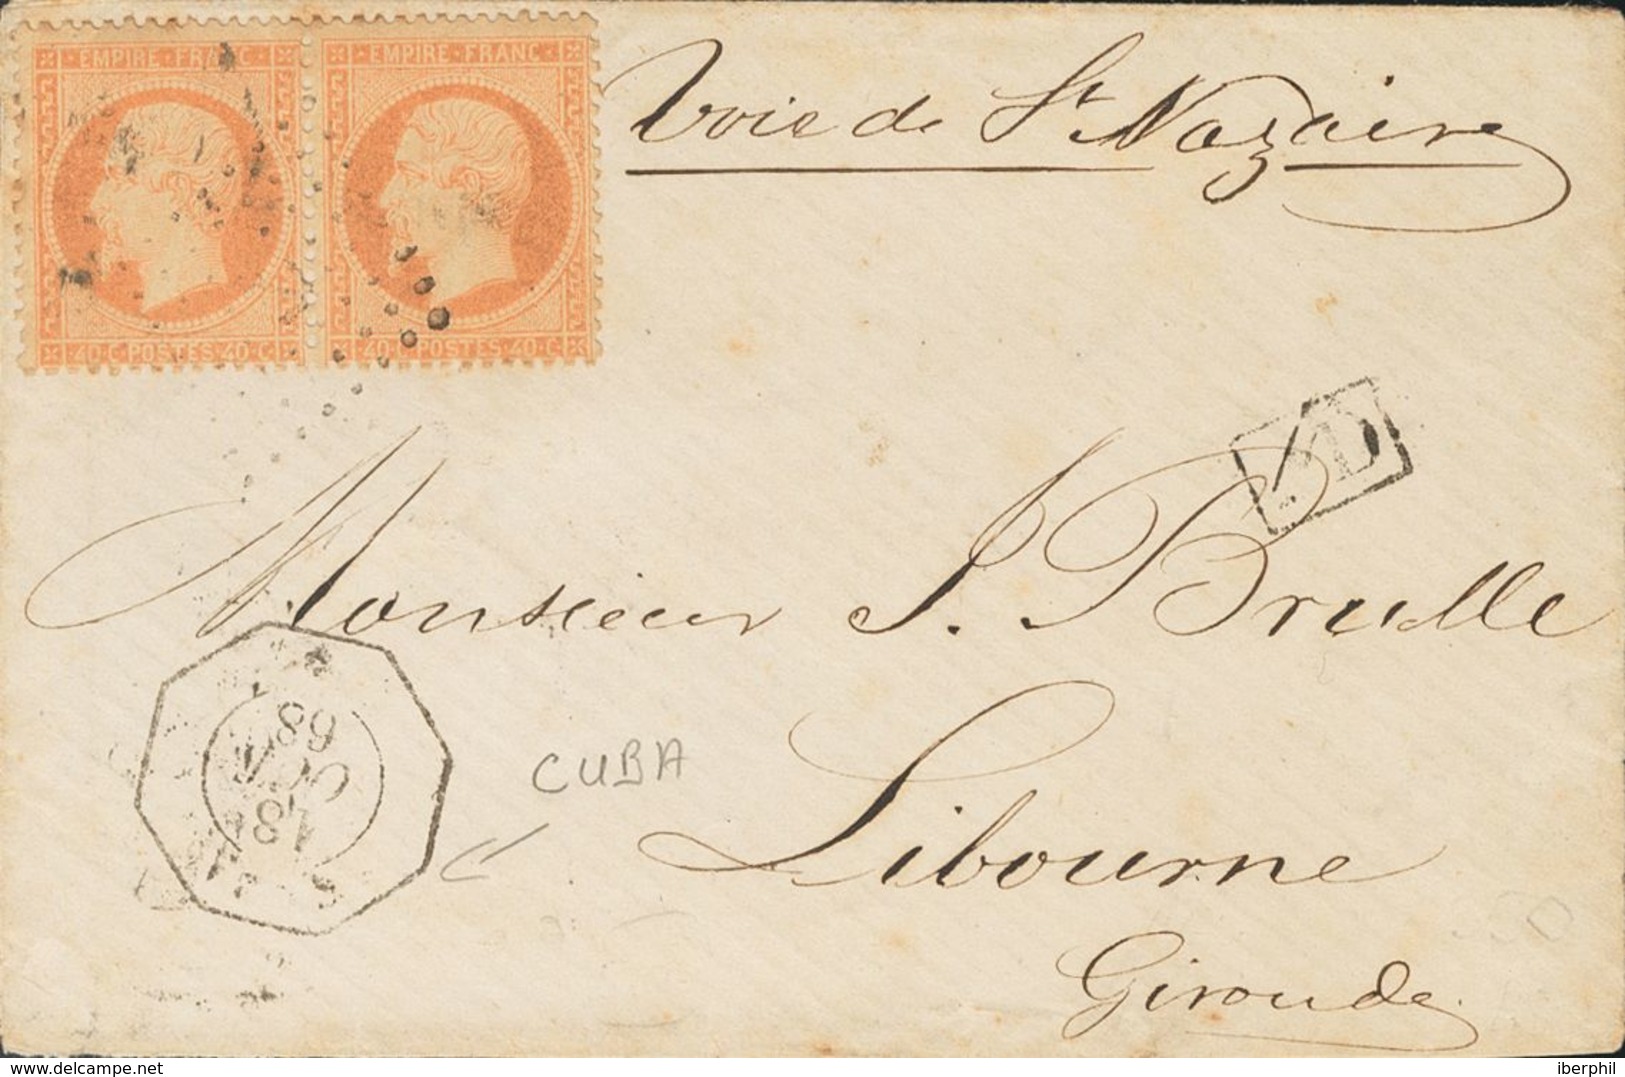 EMPIRE FRANC EMPIRE FRANC
40·C POSTES·40·C 40·C POSTES·40·C
Voie de St Nazaire
PD
Monsieur J. Brulle
18
OCT
68
CUBA
Libourne
Gironde
www.delcampe.net
iberphil